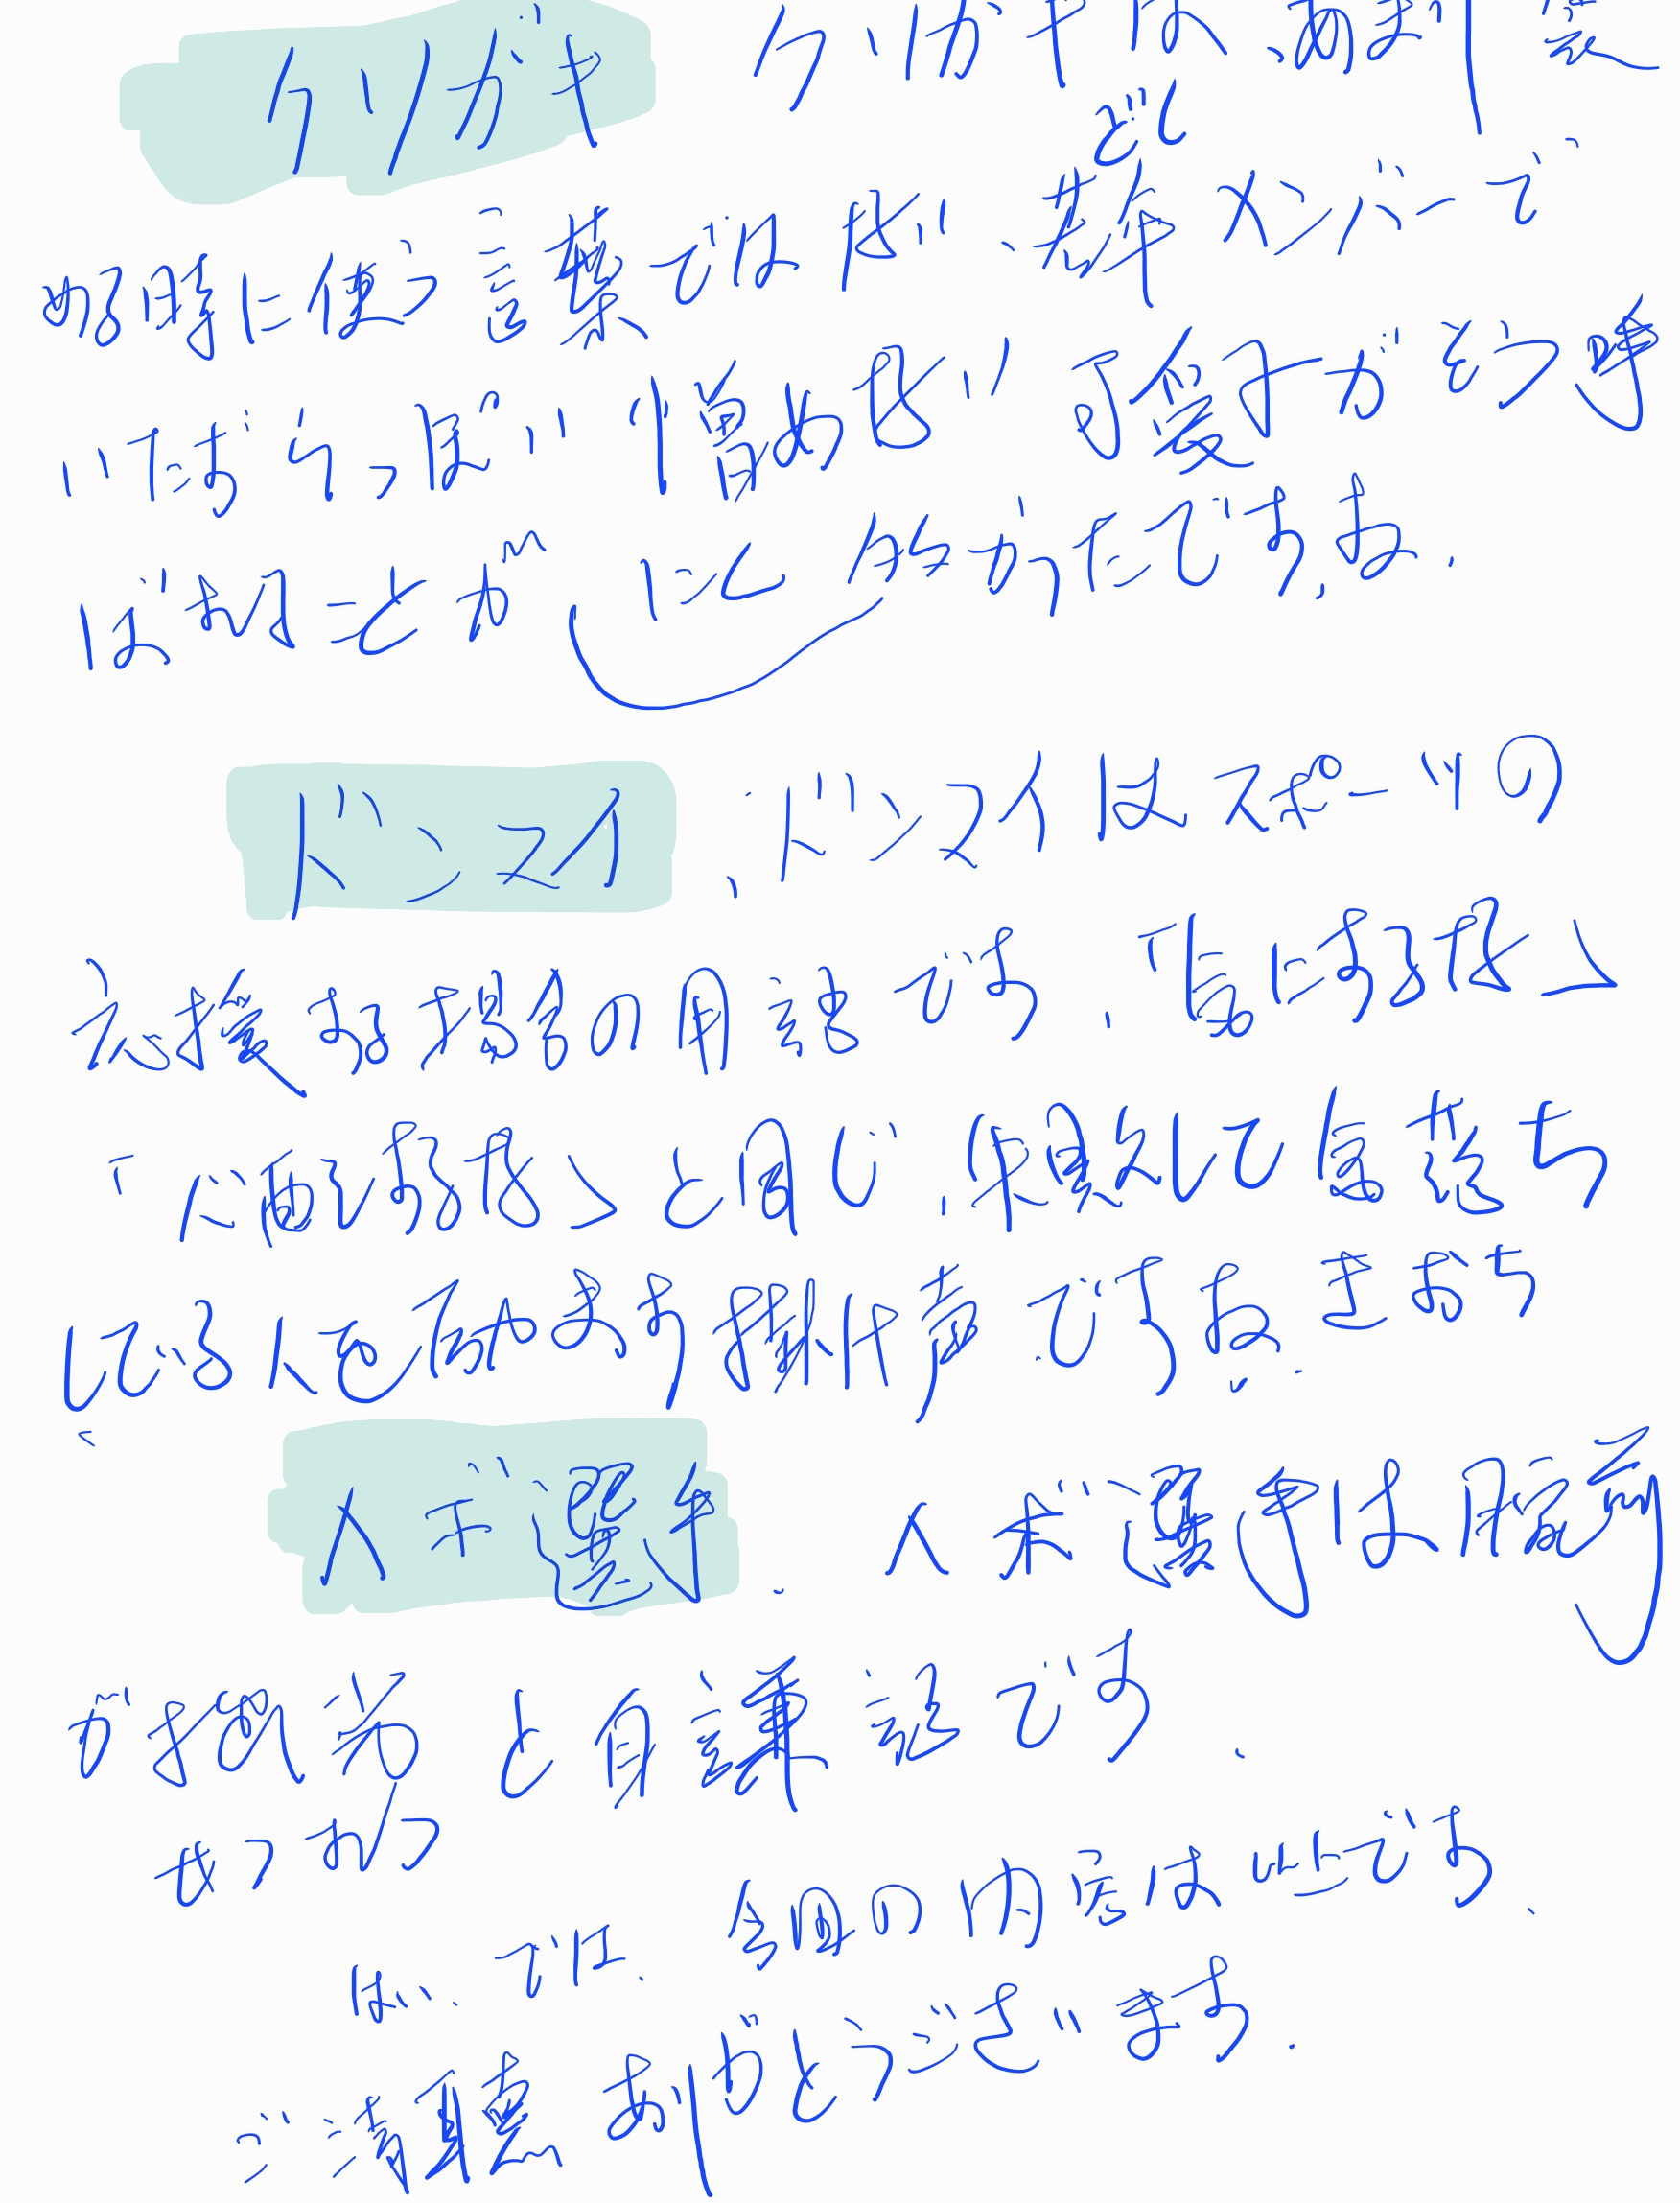 クソガキ クソガキは、あまり 褒
どし
める時に使う言葉では無い、若年メンバーで
いたずらっぽい憎めない可愛子がそう呼
ばれることが 多かったですね.
ドンマイ、ドンマイはスポーツの
応援する場合の用語です、「気にするな」
「心配するな」と同じ、失敗して気落ち
している人を励ます掛け声ですね. きおち
ヘボ選手. ヘボ選手は腕前
が拙劣と自謙語です.
せつれつ
はい、では、今回の内容は以上です.
ご清聴ありがとうございます.